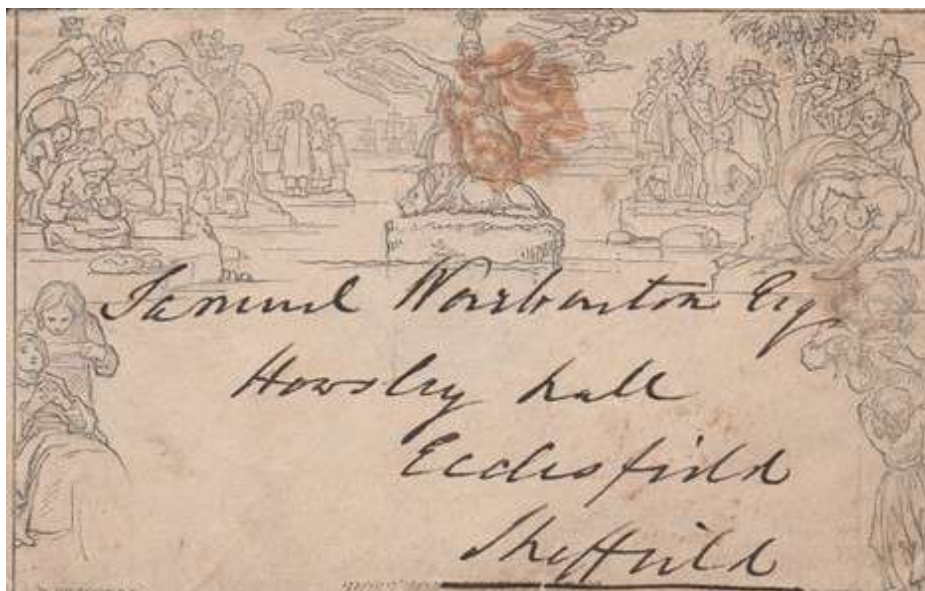 Samuel Warburton Esq
Howsley hall
Ecclesfield
Sheffield